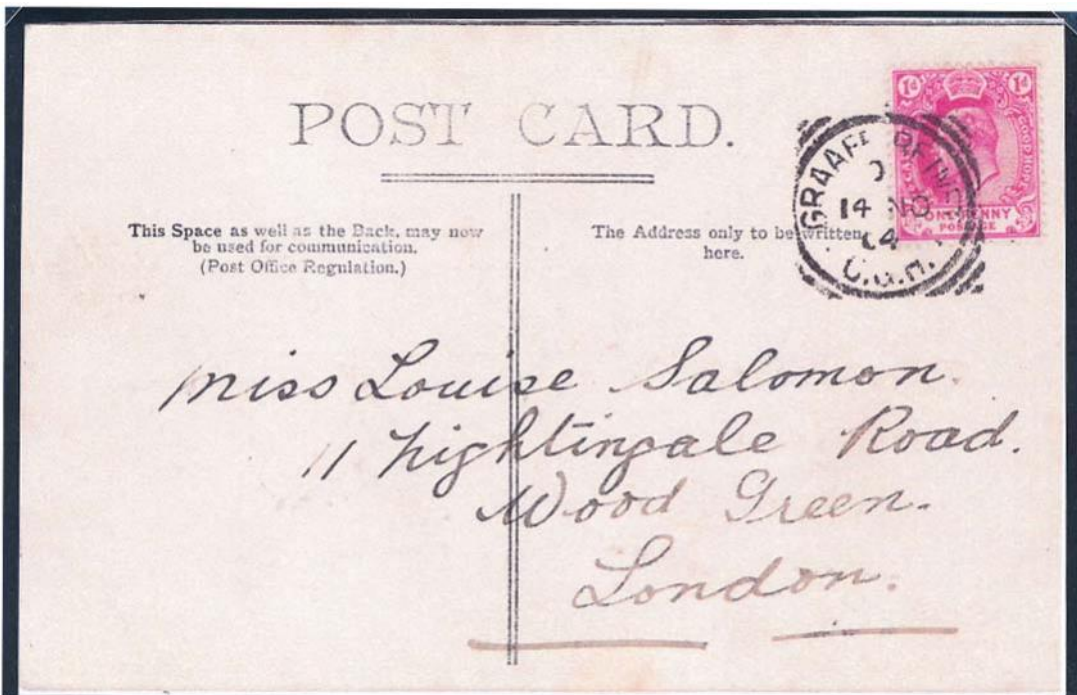 POST CARD.
This Space as well as the Back, may now
be used for communication.
(Post Office Regulation.)
The Address only to be written
here.
1d 1d
GOOD HOPE
ONE PENNY
POSTAGE
GRAAFF REINET
14 NO
04
C.G.H.
Miss Louise Salomon.
11 Nightingale Road.
Wood Green.
London.